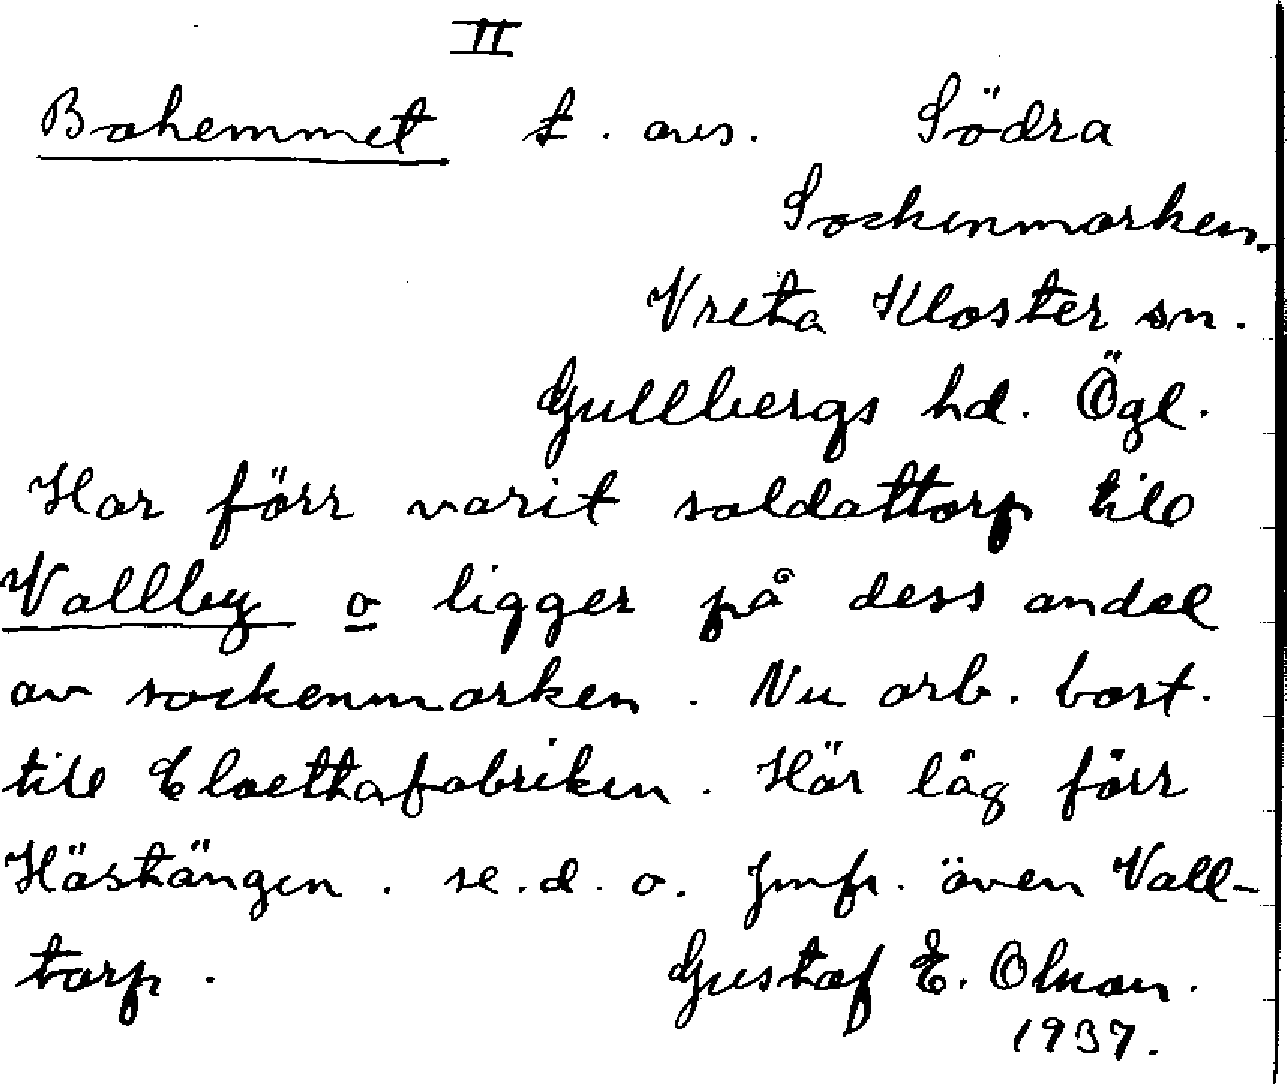 II
Bohemmet t. avs. Södra
Sockenmarken.
Vreta Kloster sn.
Gullbergs hd. Ögl.
Har förr varit soldattorp till
Vallby o ligger på dess andel
av sockenmarken. Nu arb. bost.
till Cloettafabriken. Här låg förr
Hästängen. se. d. o. Jmfr. även Vall-
torp. Gustaf E. Olman.
1937.